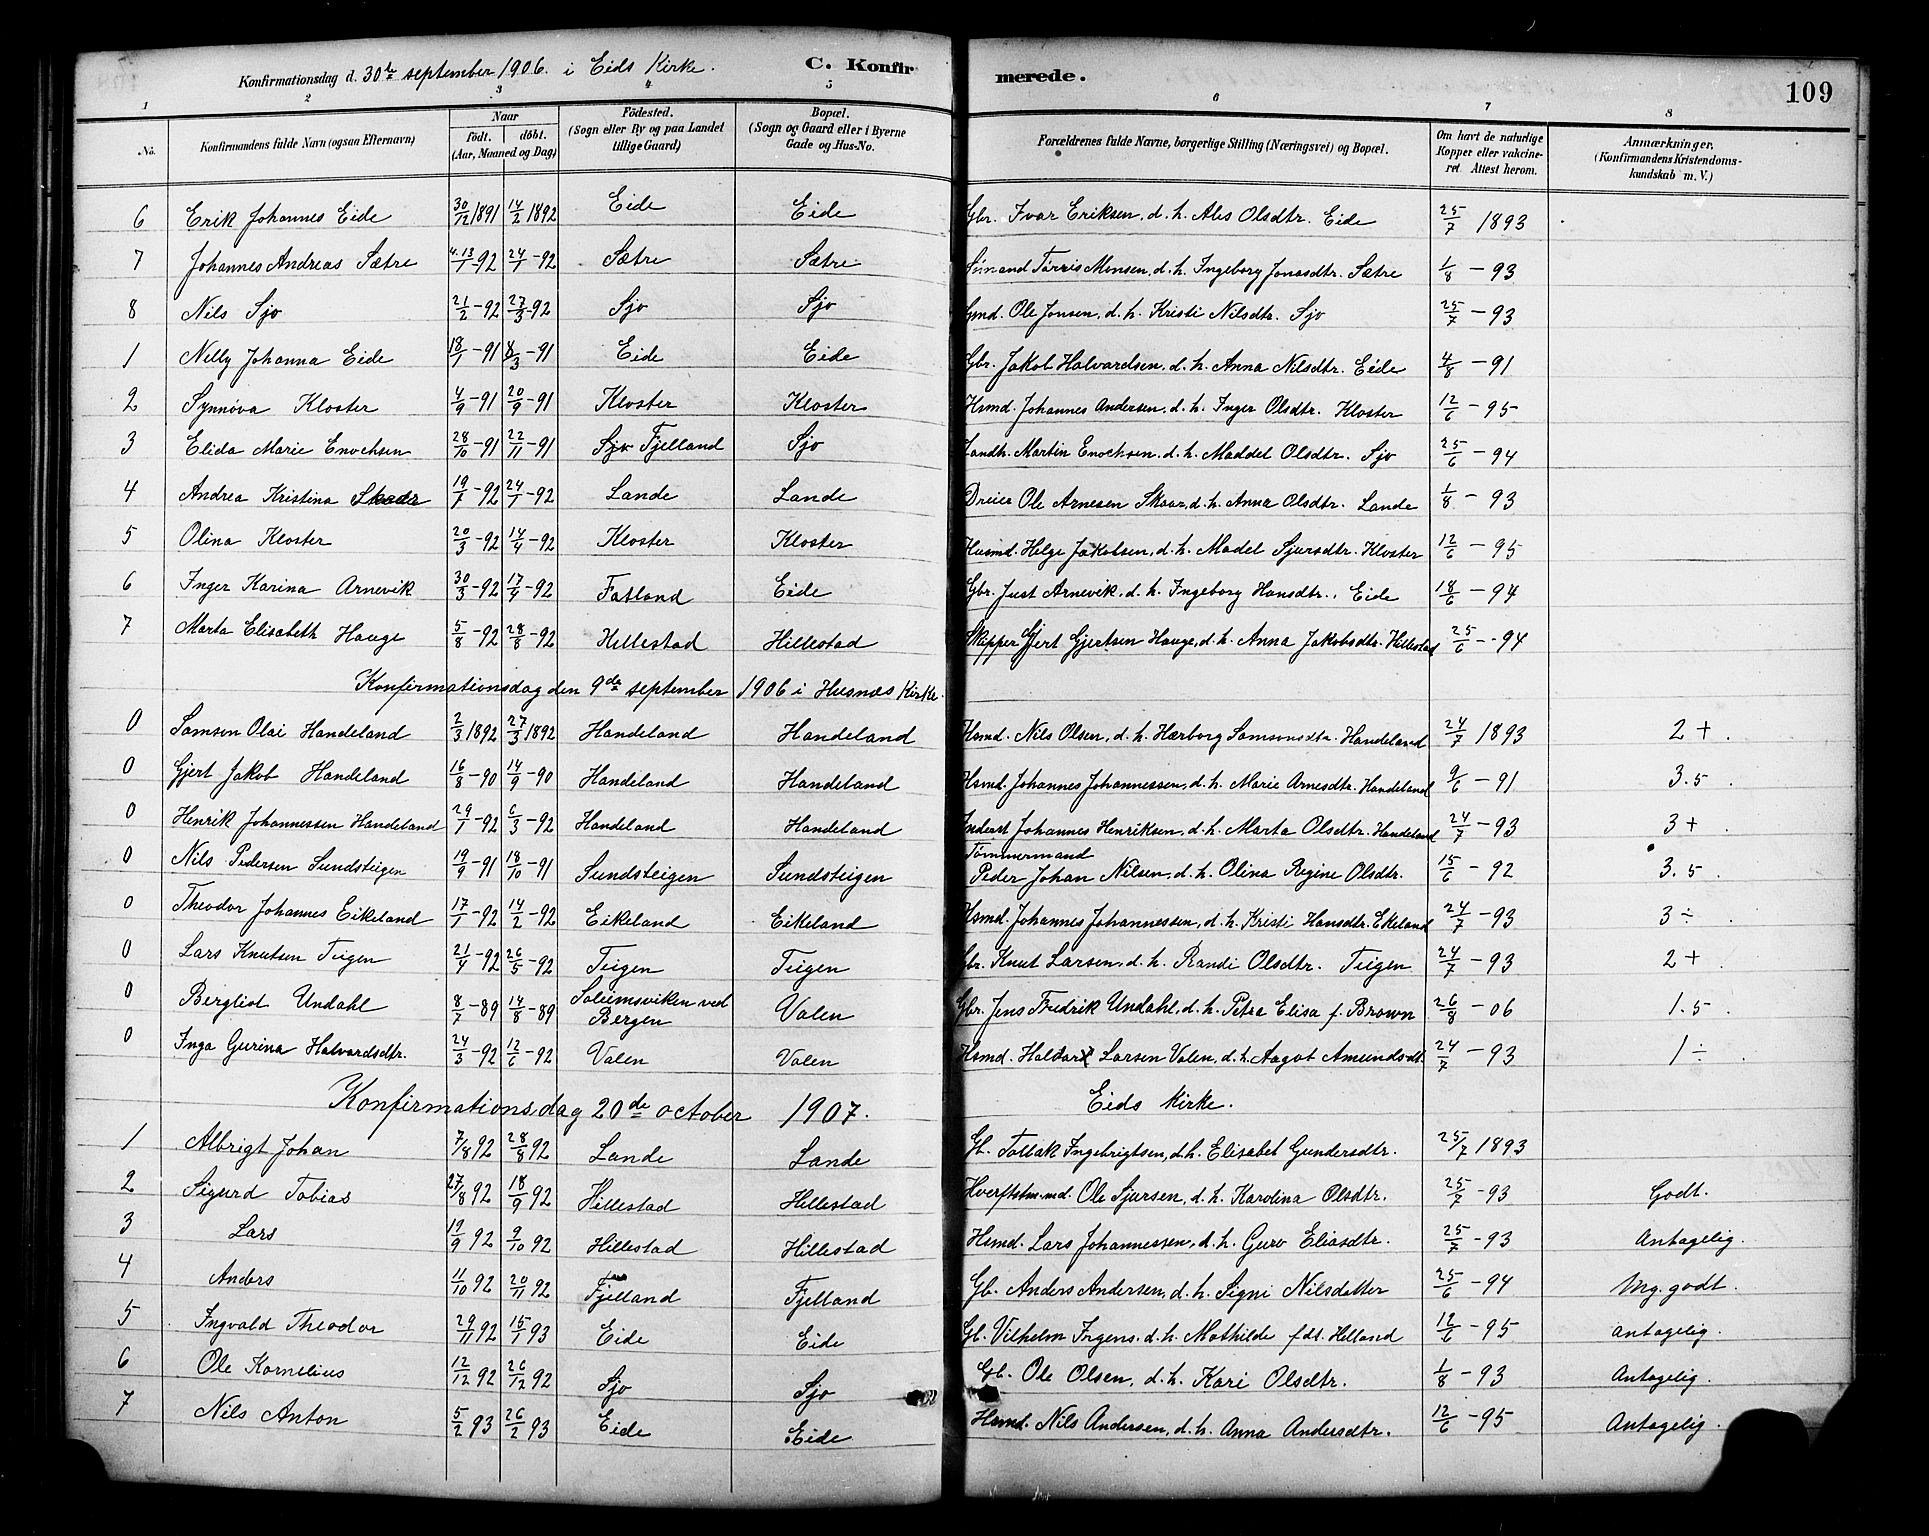 Konfirmationsdag d. 30te september 1906. i Eids Kirke. C. Konfir merede. 109
1 2 3 4 5 6 7 8
No. Konfirmandens fulde Navn (ogsaa Efternavn) Naar født. døbt. (Aar, Maaned og Dag) Fødested. (Sogn eller By og paa Landet tillige Gaard) Bopæl. (Sogn og Gaard eller i Byerne Gade og Hus-No. Forældrenes fulde Navne, borgerlige Stilling (Næringsvei) og Bopæl. Om havt de naturlige Kopper eller vakcineret. Attest herom. Anmærkninger. (Konfirmandens Kristendomskundskab m. V.)
6 Erik Johannes Eide 30/12 1891 14/2 1892 Eide Eide Gbr. Ivar Eriksen, d. h. Ales Olsdtr. Eide 25/7 1893
7 Johannes Andreas Sætre 13/1-92 24/1-92 Sætre Sætre Tørris Monsen, d. h. Ingeborg Jonasdtr. Sætre 1/8-93
8 Nils Sjo 21/2-92 27/3-92 Sjo Sjo Ole Jonsen, d. h. Kristi Nilsdtr. Sjo 25/7-93
1 Nelly Johanna Eide 18/1-91 8/3-91 Eide Eide Gbr. Jakob Halvardsen, d. h. Anna Nilsdtr. Eide 4/8-91
2 Synnøva Kloster 4/9-91 20/9-91 Kloster Kloster Hsmd. Johannes Andersen, d. h. Inger Olsdtr. Kloster 12/6-95
3 Elida Marie Enochsen 28/10-91 22/11-91 Sjo Fjelland Sjo Landh. Martin Enochsen, d. h. Maddel Olsdtr. Sjo 25/6-94
4 Andrea Kristina Skaar 19/1-92 24/1-92 Lande Lande Dreier Ole Arnesen Skaar, d. h. Anna Olsdtr. Lande 1/8-93
5 Olina Kloster 20/3-92 14/4-92 Kloster Kloster Husmd. Helge Jakobsen, d. h. Madel Sjursdtr. Kloster 12/6-95
6 Inger Karina Arnevik 30/3-92 17/4-92 Fatland Eide Gbr. Just Arnevik, d. h. Ingeborg Hansdtr., Eide 18/6-94
7 Marta Elisabeth Hauge 5/8-92 28/8-92 Hillestad Hillestad Skipper Gjert Gjertsen Hauge, d. h. Anna Jakobsdtr. Hillestad 25/6--94
Konfirmationsdag den 9de september 1906 i Husnes Kirke.
0 Samson Olai Handeland 2/3 1892 27/3 1892 Handeland Handeland Hsmd. Nils Olsen, d. h. Hærborg Samsonsdtr. Handeland 24/7 1893 2+.
0 Gjert Jakob Handeland 16/8-90 14/9-90 Handeland Handeland Hsmd. Johannes Johannessen, d. h. Marie Arnesdtr. Handeland 9/6-91 3.5.
0 Henrik Johannessen Handeland 29/1-92 6/3-92 Handeland Handeland Inderst Johannes Henriksen, d. h. Marta Olsdtr. Handeland 24/7-93 3+.
0 Nils Pedersen Sundsteigen 19/9-91 18/10-91 Sundsteigen Sundsteigen Tømmermand Peder Johan Nilsen, d. h. Olina Regine Olsdtr. 15/6-92 3.5.
0 Theodor Johannes Eikeland 17/1-92 14/2-92 Eikeland Eikeland Hsmd. Johannes Johannessen, d. h. Kristi Hansdtr. Ekeland 24/7-93 3÷.
0 Lars Knutsen Teigen 21/4-92 26/5-92 Teigen Teigen Gbr. Knut Larsen, d. h. Randi Olsdtr. Teigen 24/7-93 2+.
0 Bergliot Undahl 8/7-89 14/8-89 Soleimsviken ved Bergen Valen Gbr. Jens Fredrik Undahl, d. h. Petra Elisa f. Brown 26/8-06 1.5.
0 Inga Gurina Halvardsdtr. 24/3-92 12/6-92 Valen Valen Hsmd. Haldar Larsen Valen, d. h. Aagot Amundsdt. 24/7-93 1÷.
Konfirmationsdag 20de october 1907. Eids Kirke.
1 Albrigt Johan 7/8 92 28/8 92 Lande Lande Gb. Tollak Ingebrigtsen, d. h. Elisabet Gundersdtr. 25/7 1893
2 Sigurd Tobias 27/8 92 18/9 92 Hillestad Hillestad Ole Sjursen, d. h. Karolina Olsdtr. 25/7-93 Godt.
3 Lars 19/9 92 9/10 92 Hillestad Hillestad Hsmd. Lars Johannessen, d. h. Guro Eliasdtr. 25/7-93 Antagelig.
4 Anders 11/10 92 20/11 92 Fjelland Fjelland Gb. Anders Andersen, d. h. Signi Nilsdatter 25/6-94 Mg. godt.
5 Ingvald Theodor 29/11 92 15/1 93 Eide Eide Gb. Vilhelm Irgens. d. h. Mathilde fdt. Helland 12/6-95 antagelig.
6 Ole Kornelius 12/12 92 26/12 92 Sjo Sjo Gb. Ole Olsen, d. h. Kari Olsdtr. 1/8-93 Antagelig.
7 Nils Anton 5/2 93 26/2 93 Eide Eide Hsmd. Nils Andersen, d. h. Anna Andersdtr. 12/6-95 Antagelig.